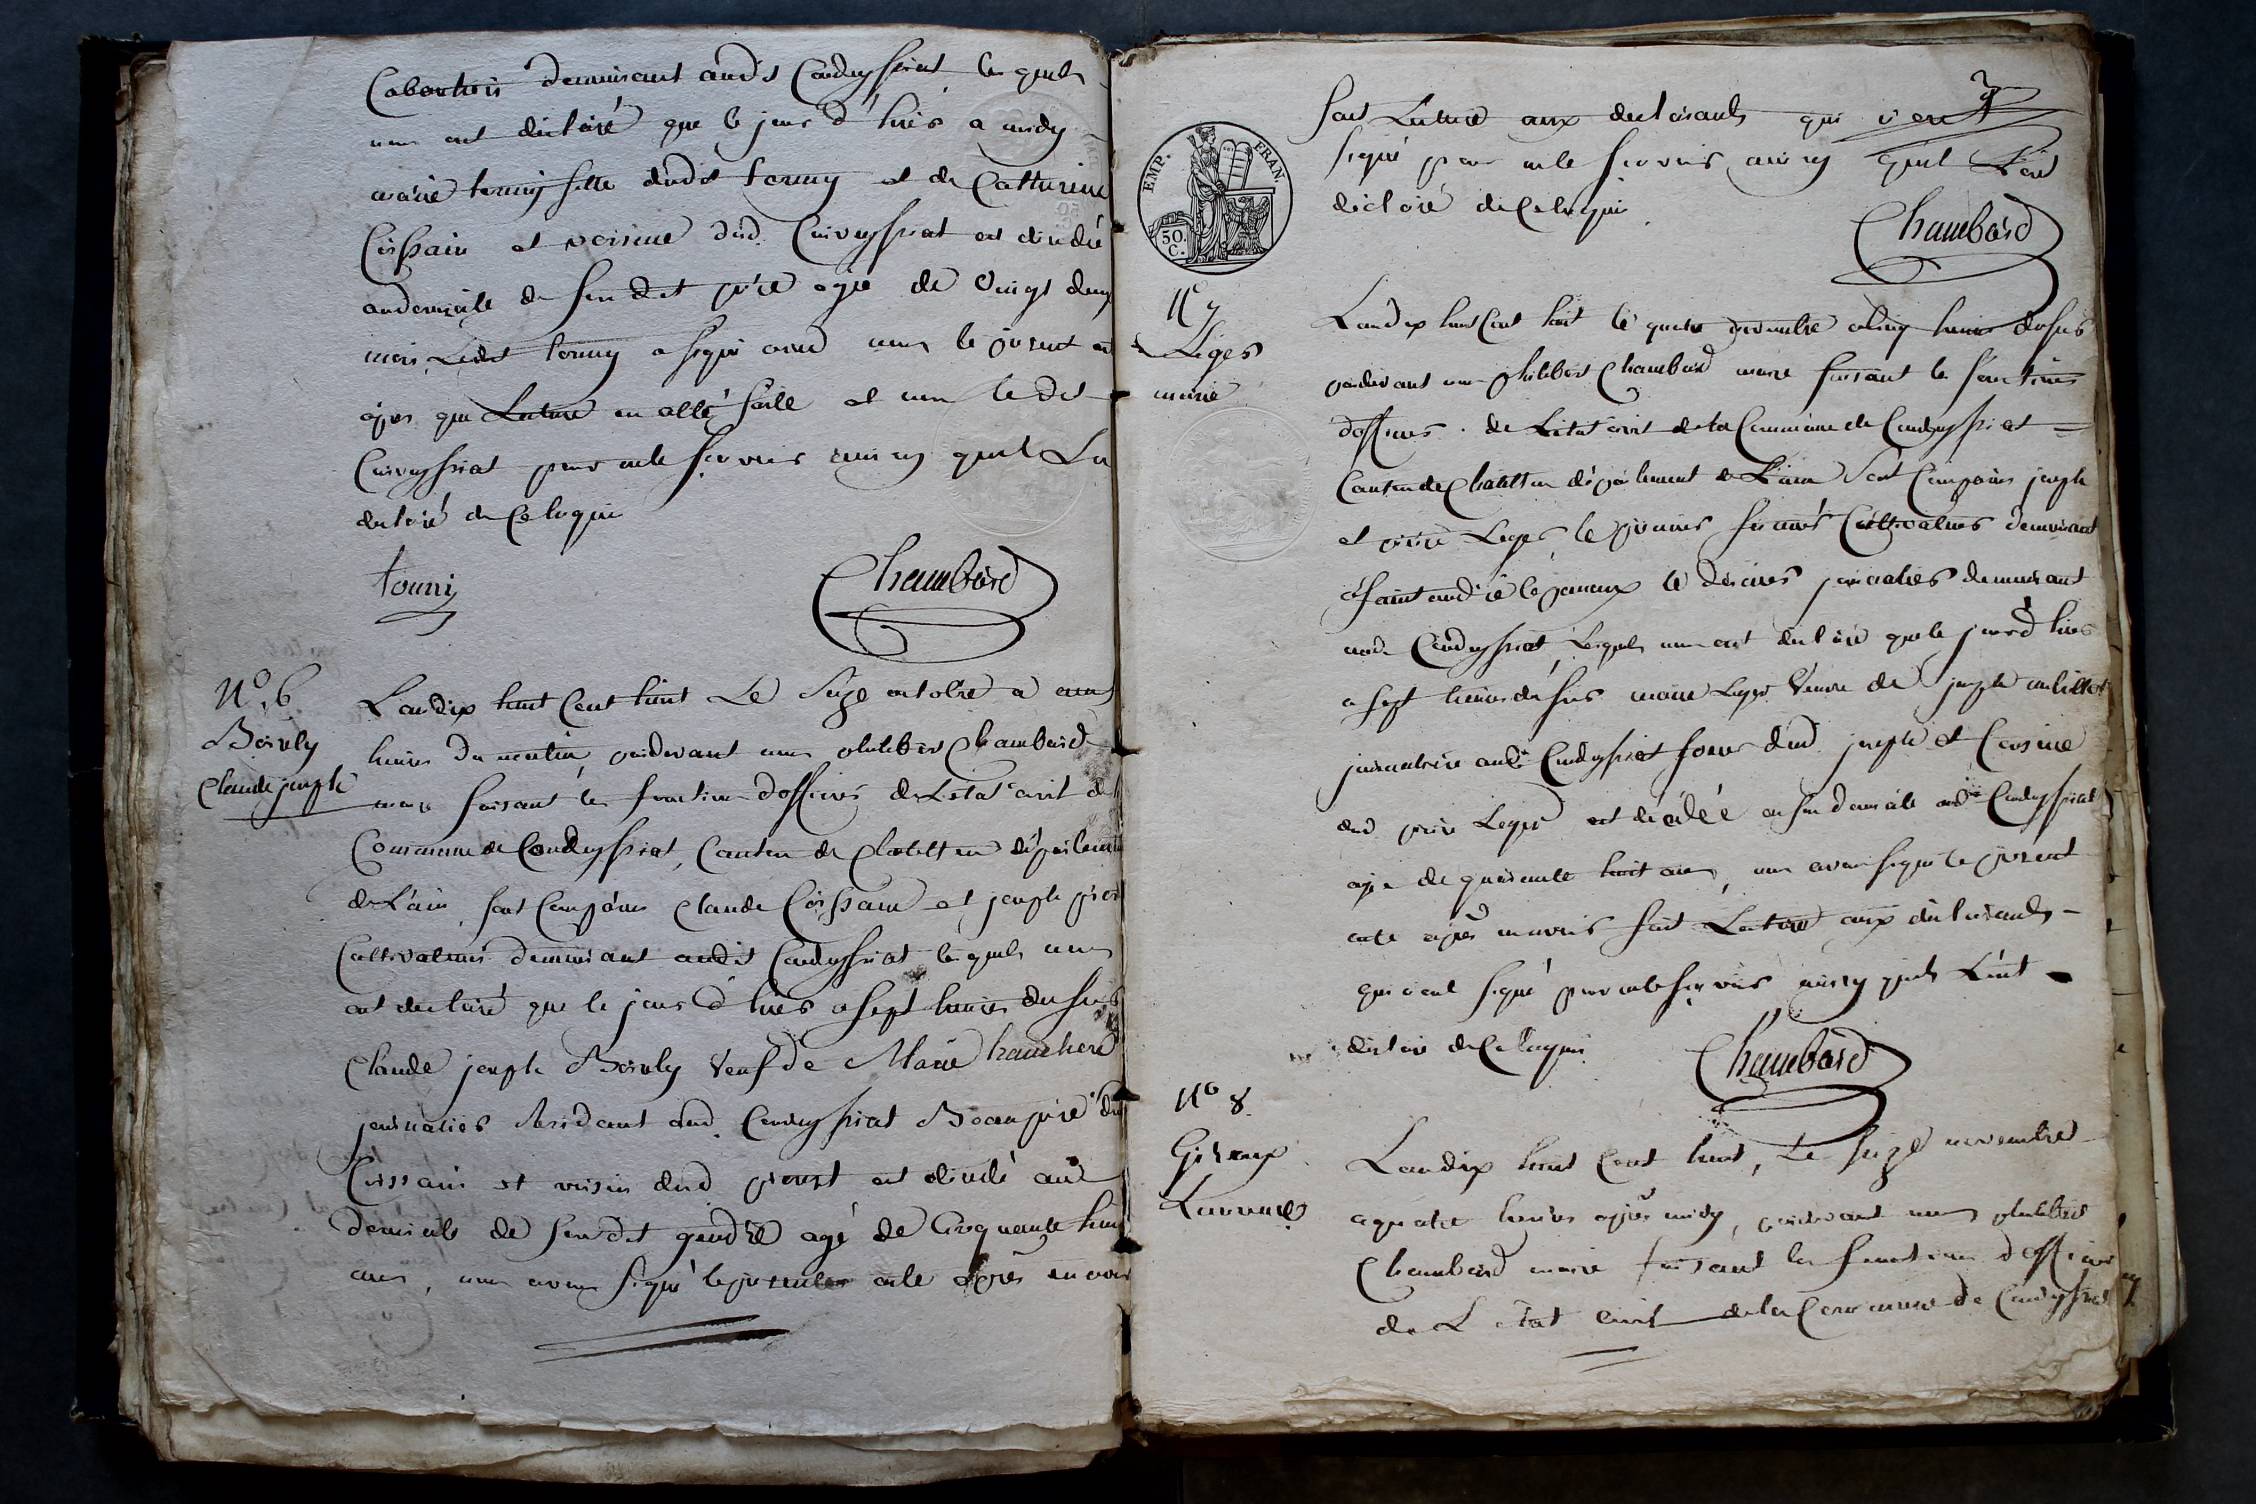 Cabartier demeurant audit Condeyssiat les quels
nous ont déclaré que le jour d'hier a midy
marie tonny fille dudit tonny et de Catherine
Coissain et voisine dud. Condeyssiat est décédée
au domicile de son dit père agée de Vingt deux
mois, Ledit tonny a signé avec nous le présent
après que Lecture en a été faite et non le dit
pour ne le sçavoir ainsy quil La
déclaré de Ce requi
tonny
Chambard
N° 6
Boisuly
Claude joseph
L'an dix huit Cent huit Le Seize octobre a
heures du matin, pardevant nous philiber Chambard
maire faisant les fonctions d'officiers de L'état civil de
Commune de Condeyssiat, Canton de Chatillon département
de L'ain, sont Comparus Claude Coissain et joseph
Cultivateurs demeurant audit Condeyssiat les quels nous
ont déclaré que le jour d'hier a sept heures du soir
Claude joseph Boisuly Veuf de Marie
journalier Residant aud. Condeyssiat Beaupère du
Coissain et voisin dud est décédé au
domicile de son dit gendre agé de Cinquante huit
ans, nous avons signé le présent acte après en avoir
3
EMP. FRAN.
50. C.
fait Lecture aux declarants qui n'ont
signé pour ne le sçavoir ainsy quil L'ont
déclaré de Ce requi
Chambard
N° 7
Léges
marie
L'an dix huit Cent huit le quatre novembre a cinq heures du soir
pardevant nous philiber Chambard maire faisant les fonctions
d'officiers de L'état civil de la Commune de Condeyssiat
Canton de Chatillon département de L'ain Sont Comparus joseph
et Leges, le premier Cultivateurs demeurant
a Saint andré le panoux le journalier demeurant
aud. Condeyssiat, Lesquels nous ont déclaré que le jour d'hier
a sept heures du soir marie Leges Veuve de joseph
journalière audit Condeyssiat soeur dud. joseph et Cousine
dud Leges est décédée en son domicile audit Condeyssiat
agée de quarante huit ans, nous avons signé le présent
acte après en avoir fait Lecture aux déclarants
qui n'ont signé pour ne le sçavoir ainsy quils L'ont
déclaré de Ce requi
Chambard
N° 8.
Giroux
L'an dix huit Cent huit, Le Seize novembre
a quatre heures après midy, pardevant nous philiber
Chambard maire faisant les fonctions d'officiers
de L'état Civil de la Commune de Condeyssiat